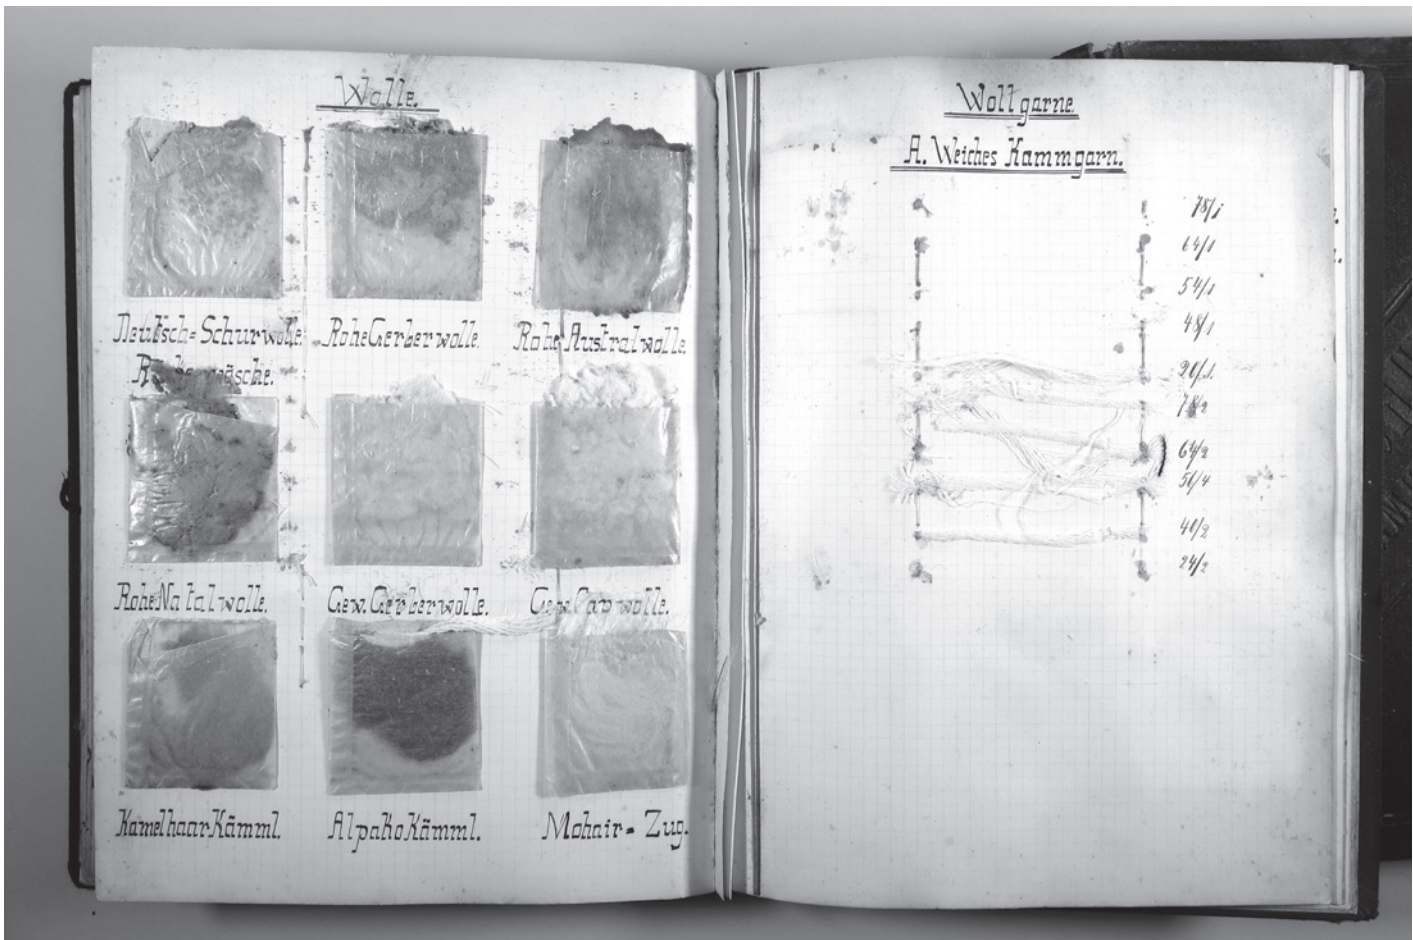 Wolle.
Deutsch=Schurwolle.
Rohe Gerberwolle.
Rohe Australwolle.
Rohe Natalwolle.
Gew. Gerberwolle.
Gew. Capwolle.
Kamelhaar Kämml.
Alpako Kämml.
Mohair=Zug.
Wollgarne.
A. Weiches Kammgarn.
78/1
64/1
54/1
48/1
20/1.
78/2
64/2
40/2
24/2